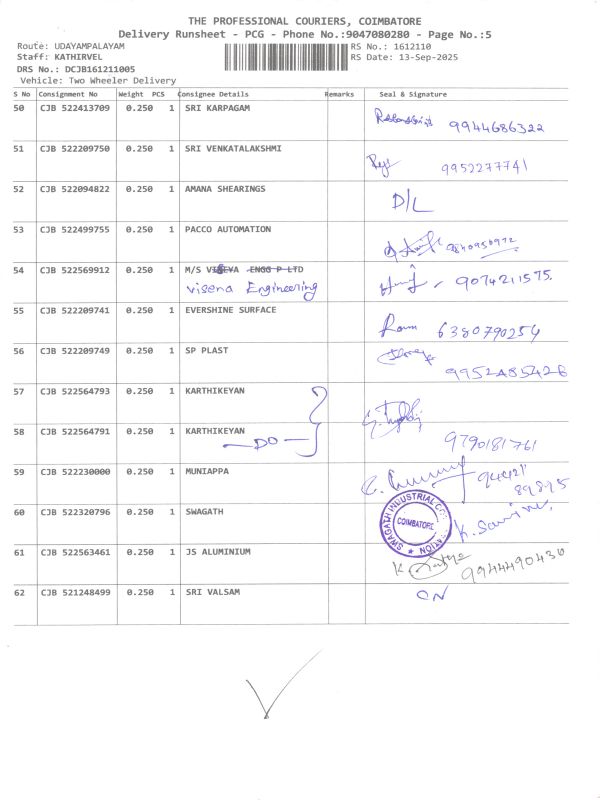 THE PROFESSIONAL COURIERS, COIMBATORE
Delivery Runsheet - PCG - Phone No.:9047080280 - Page No.:5
Route: UDAYAMPALAYAM RS No.: 1612110
Staff: KATHIRVEL RS Date: 13-Sep-2025
DRS No.: DCJB161211005
Vehicle: Two Wheeler Delivery
S No Consignment No Weight PCS Consignee Details Remarks Seal & Signature
50 CJB 522413709 0.250 1 SRI KARPAGAM
9944686322
51 CJB 522209750 0.250 1 SRI VENKATALAKSHMI
9952277741
52 CJB 522094822 0.250 1 AMANA SHEARINGS
D/L
53 CJB 522499755 0.250 1 PACCO AUTOMATION
9840950972
54 CJB 522569912 0.250 1 M/S VISEVA ENGG P LTD
visena Engineering 9074211575.
55 CJB 522209741 0.250 1 EVERSHINE SURFACE
Ram 6380790254
56 CJB 522209749 0.250 1 SP PLAST
9952485426
57 CJB 522564793 0.250 1 KARTHIKEYAN
58 CJB 522564791 0.250 1 KARTHIKEYAN
DO 9790181761
59 CJB 522230000 0.250 1 MUNIAPPA
94421
89895
60 CJB 522320796 0.250 1 SWAGATH
SWAGATH INDUSTRIAL CORPORATION
COIMBATORE
61 CJB 522563461 0.250 1 JS ALUMINIUM
9944490430
62 CJB 521248499 0.250 1 SRI VALSAM
CN